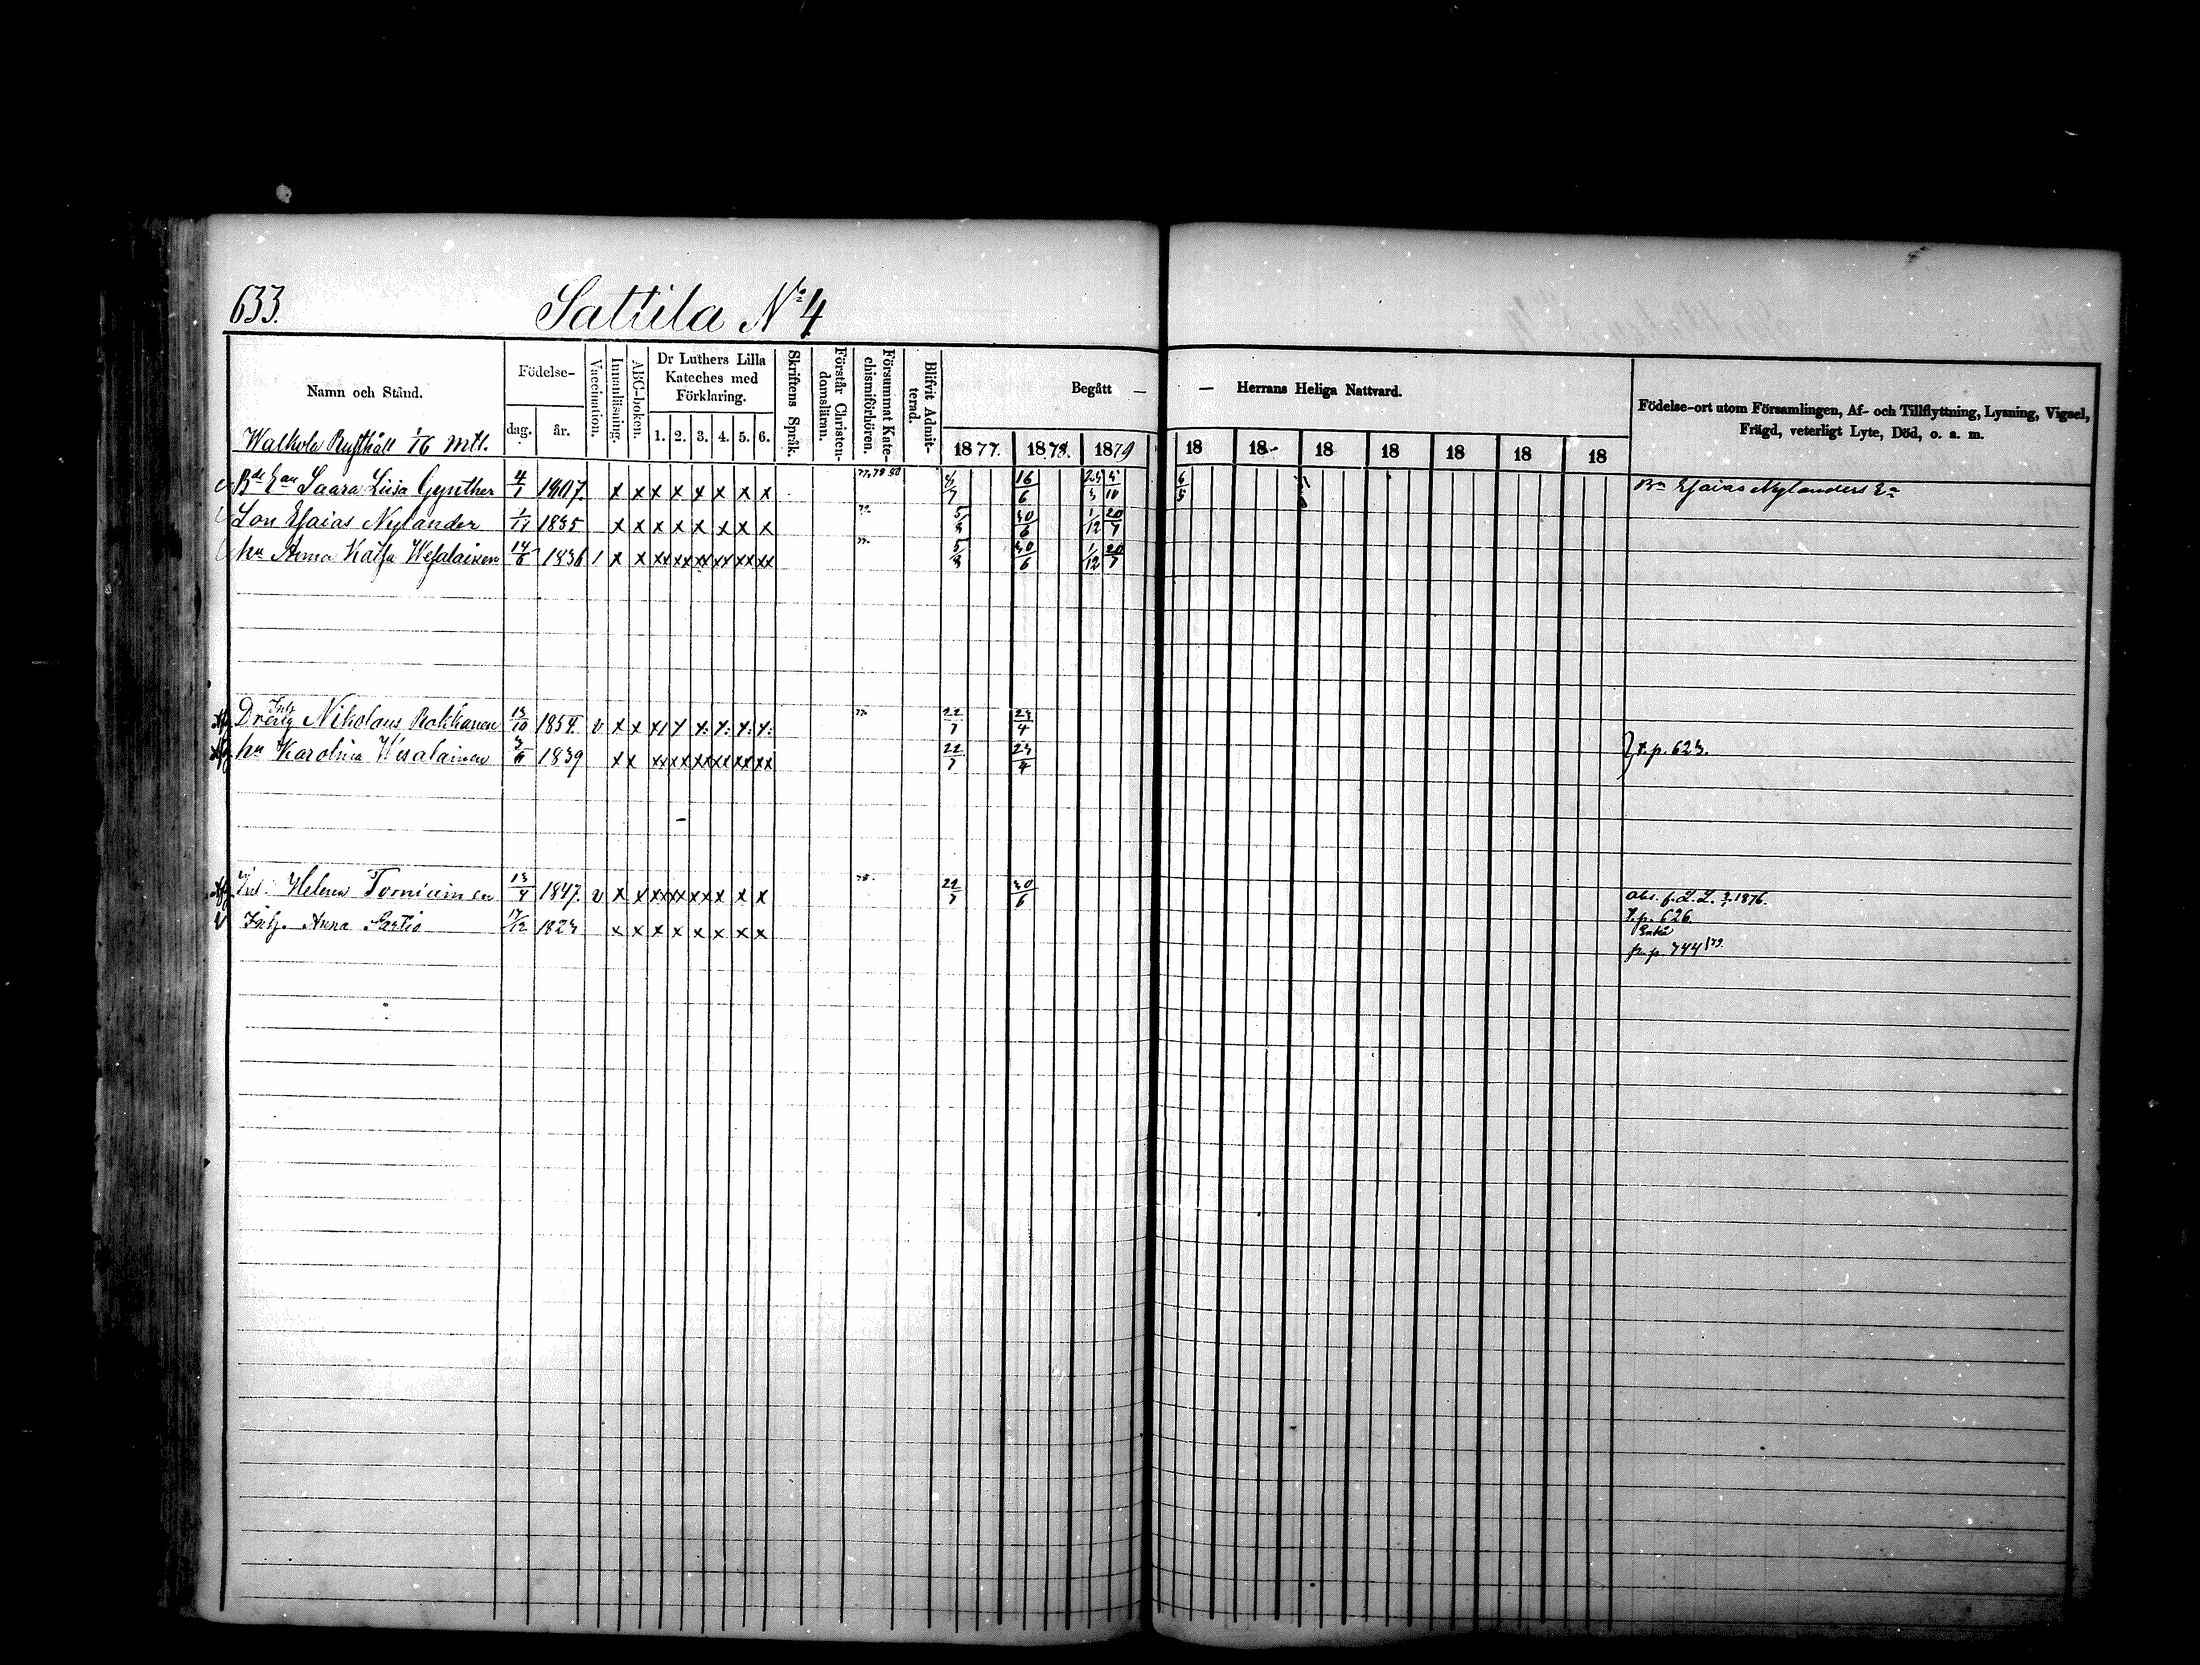 633.
Sattila No 4
Namn och Stånd.
Födelse-
dag.
år.
Vaccination.
Innanläsning.
ABC-boken.
Dr Luthers Lilla
Kateches med
Förklaring.
1. 2. 3. 4. 5. 6.
Skriftens Språk.
Förstår Christen-
domslären.
Försummat Kate-
chismiförhören.
Blifvit Admit-
terad.
Begått —
— Herrans Heliga Nattvard.
1877. 1878. 1879 18 18 18 18 18 18 18
Födelse-ort utom Församlingen, Af- och Tillflyttning, Lysning, Vigsel,
Frägd, veterligt Lyte, Död, o. a. m.
Walkola Rusthåll 1/6 mtl.
Bde Ean Saara Liisa Gynther 4/1 1807. x x x x x x x x 77, 78 80 16/6 6/5 Bn Esaias Nylanders Ea
Son Esaias Nylander 1/11 1835 x x x x x x x x 5/8 30/6 1/12 20/7
hu Anna Kaisa Wesalainen 14/6 1836 1 x x xx xx xx xx xx xx 77. 5/8 30/6 1/12 20/7
Inh
Dräng Nikolaus Rokkanen 13/10 1854 v x x 77. 22/7 23/4
hu Karolina Wesalainen 3/6 1839 x x xx xx xx xx xx xx 22/7 23/4 t. p. 623.
Helena Torniainen 13/4 1847. v x x xx xx xx x x x 22/7 30/6 abs. f. L. L. 1876.
T. p. 626
Inh. Anna Sartio 17/12 1823 x x x x x x x x Enka
p. p. 744 /79